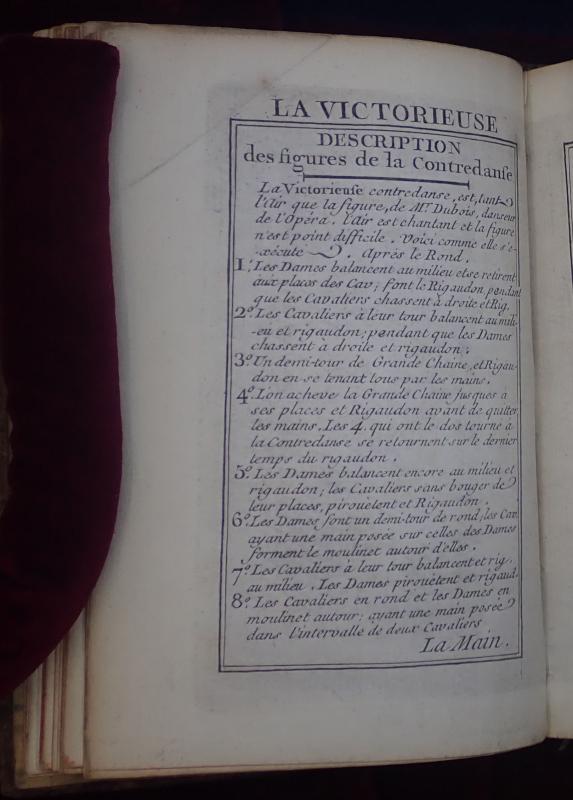 LA VICTORIEUSE
DESCRIPTION
des figures de la Contredanse
La Victorieuse contredanse, est, tant
l'Air que la figure, de Mr. Dubois, danseur
de l'Opéra. l'Air est chantant et la figure
n'est point difficile. Voici comme elle s'e-
xécute. Après le Rond.
1.º Les Dames balancent au milieu et se retirent
aux places des Cav; font le Rigaudon, pendant
que les Cavaliers chassent à droite et Rig.
2.º Les Cavaliers à leur tour balancent au mili-
eu et rigaudon; pendant que les Dames
chassent à droite et rigaudon.
3.º Un demi-tour de Grande Chaine, et Rigau-
don en se tenant tous par les mains.
4.º L'on acheve la Grande Chaine jusques à
ses places et Rigaudon avant de quitter
les mains. Les 4. qui ont le dos tourné à
la Contredanse se retournent sur le dernier
temps du rigaudon.
5.º Les Dames balancent encore au milieu et
rigaudon; les Cavaliers sans bouger de
leur places, pirouètent et Rigaudon.
6.º Les Dames font un demi-tour de rond; les Cav.
ayant une main posée sur celles des Dames
forment le moulinet autour d'elles.
7.º Les Cavaliers à leur tour balancent et rig.
au milieu. Les Dames pirouètent et rigaud.
8.º Les Cavaliers en rond et les Dames en
moulinet autour; ayant une main posée
dans l'intervalle de deux Cavaliers
La Main.